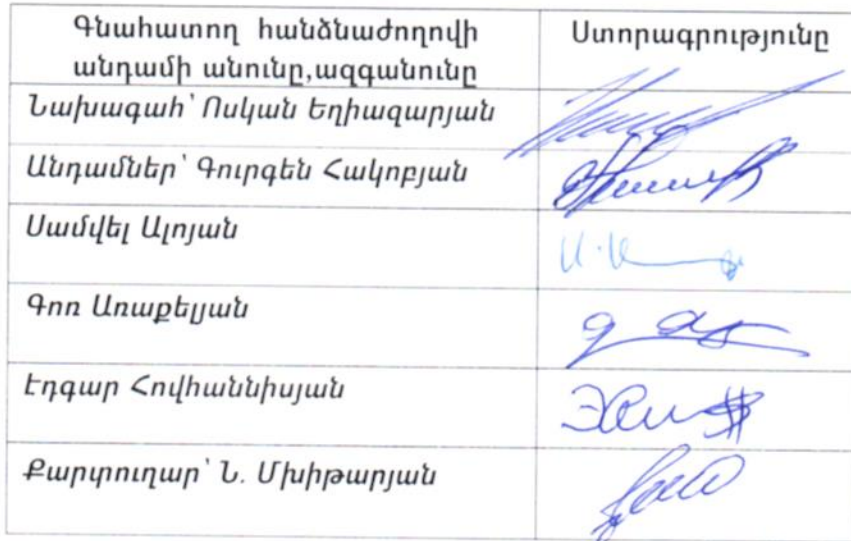 Գնահատող հանձնաժողովի
անդամի անունը,ազգանունը
Ստորագրությունը
Նախագահ՝ Ոսկան Եղիազարյան
Անդամներ՝ Գուրգեն Հակոբյան
Սամվել Ալոյան
Գոռ Առաքելյան
Էդգար Հովհաննիսյան
Քարտուղար՝ Ն. Մխիթարյան